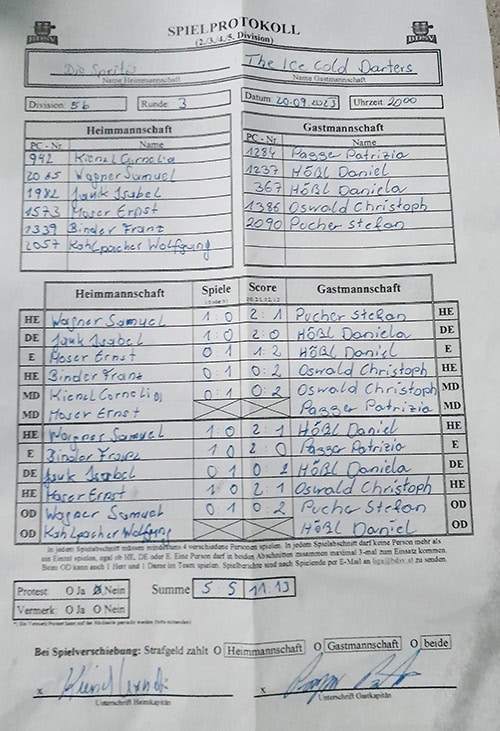 SPIELPROTOKOLL
(2./3./4./5. Division)
Die Spritzer The Ice Cold Darters
Name Heimmannschaft Name Gastmannschaft
Division: 5b Runde: 3 Datum: 20.09.2023 Uhrzeit: 2000
Heimmannschaft Gastmannschaft
PC - Nr. Name PC - Nr. Name
942 Kienel Cornelia 1284 Pagger Patrizia
2065 Wagner Samuel 1237 Hößl Daniel
1982 Jauk Isabel 367 Hößl Daniela
1573 Moser Ernst 1386 Oswald Christoph
1339 Binder Franz 2090 Pucher Stefan
2057 Kohlpacher Wolfgang
Heimmannschaft Spiele Score Gastmannschaft
HE Wagner Samuel 1:0 2:1 Pucher Stefan HE
DE Jauk Isabel 1:0 2:0 Hößl Daniela DE
E Moser Ernst 0 1 1:2 Hößl Daniel E
HE Binder Franz 0 1 0:2 Oswald Christoph HE
MD Kienel Cornelia 0:1 0:2 Oswald Christoph MD
MD Moser Ernst Pagger Patrizia MD
HE Wagner Samuel 1 0 2 1 Hößl Daniel HE
E Binder Franz 1 0 2 0 Pagger Patrizia E
DE Jauk Isabel 0 1 0 2 Hößl Daniela DE
HE Moser Ernst 1 0 2:1 Oswald Christoph HE
OD Wagner Samuel 0 1 0:2 Pucher Stefan OD
OD Kohlpacher Wolfgang Hößl Daniel OD
In jedem Spielabschnitt müssen mindestens 4 verschiedene Personen spielen. In jedem Spielabschnitt darf keine Person mehr als
ein Einzel spielen, egal ob HE, DE oder E. Eine Person darf in beiden Abschnitten zusammen maximal 3-mal zum Einsatz kommen.
Beim OD kann auch 1 Herr und 1 Dame im Team spielen. Spielberichte sind nach Spielende per E-Mail an zu senden.
Protest: O Ja O Nein Summe 5:5 11:13
Vermerk: O Ja O Nein
Bei Spielverschiebung: Strafgeld zahlt O Heimmannschaft O Gastmannschaft O beide
x x
Unterschrift Heimkapitän Unterschrift Gastkapitän